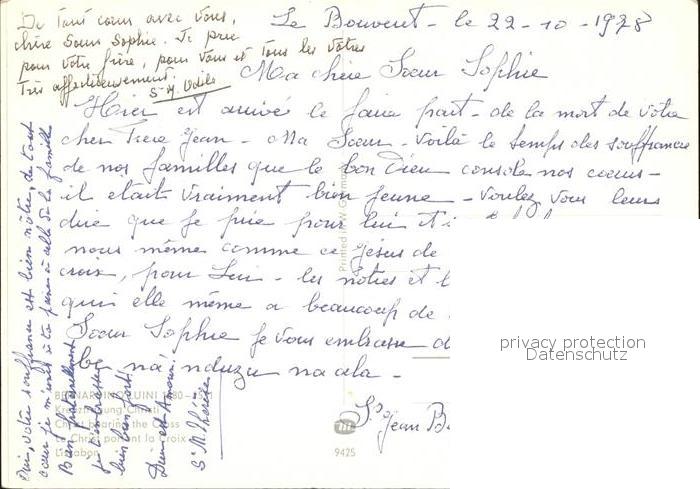 De tout cœur avec vous,
chère Sœur Sophie. Je prie
pour votre frère, pour vous et tous les vôtres
Très affectueusement.
Sr M. Odile
Le Bouveret - le 22-10-1978
Ma chère Sœur Sophie
Hier est arrivé le faire part - de la mort de votre
cher Frère Jean - Ma Sœur - voilà le temps des souffrances
de nos familles que le bon Dieu console nos cœurs -
il était vraiment bien jeune - voulez vous leurs
dire que je prie pour lui et
nous même comme ce Jésus de
croix, pour Lui - les nôtres et
qui elle même a beaucoup de
Sœur Sophie je vous embrasse
na nduzu na
Sr Jean B
Oui, votre souffrance est bien nôtre, de tout
cœur je m'unis à ta peine à celle de la famille
Bien fraternellement
je t'embrasse
bien bien fort!
Dieu est Amour!
Sr M. Thérèse
BERNARDINO LUINI 1480-
Kreuztragung Christi
Christ bearing the Cross
Le Christ portant la Croix
Lissabon
Printed in W.-Germany
9425
privacy protection
Datenschutz